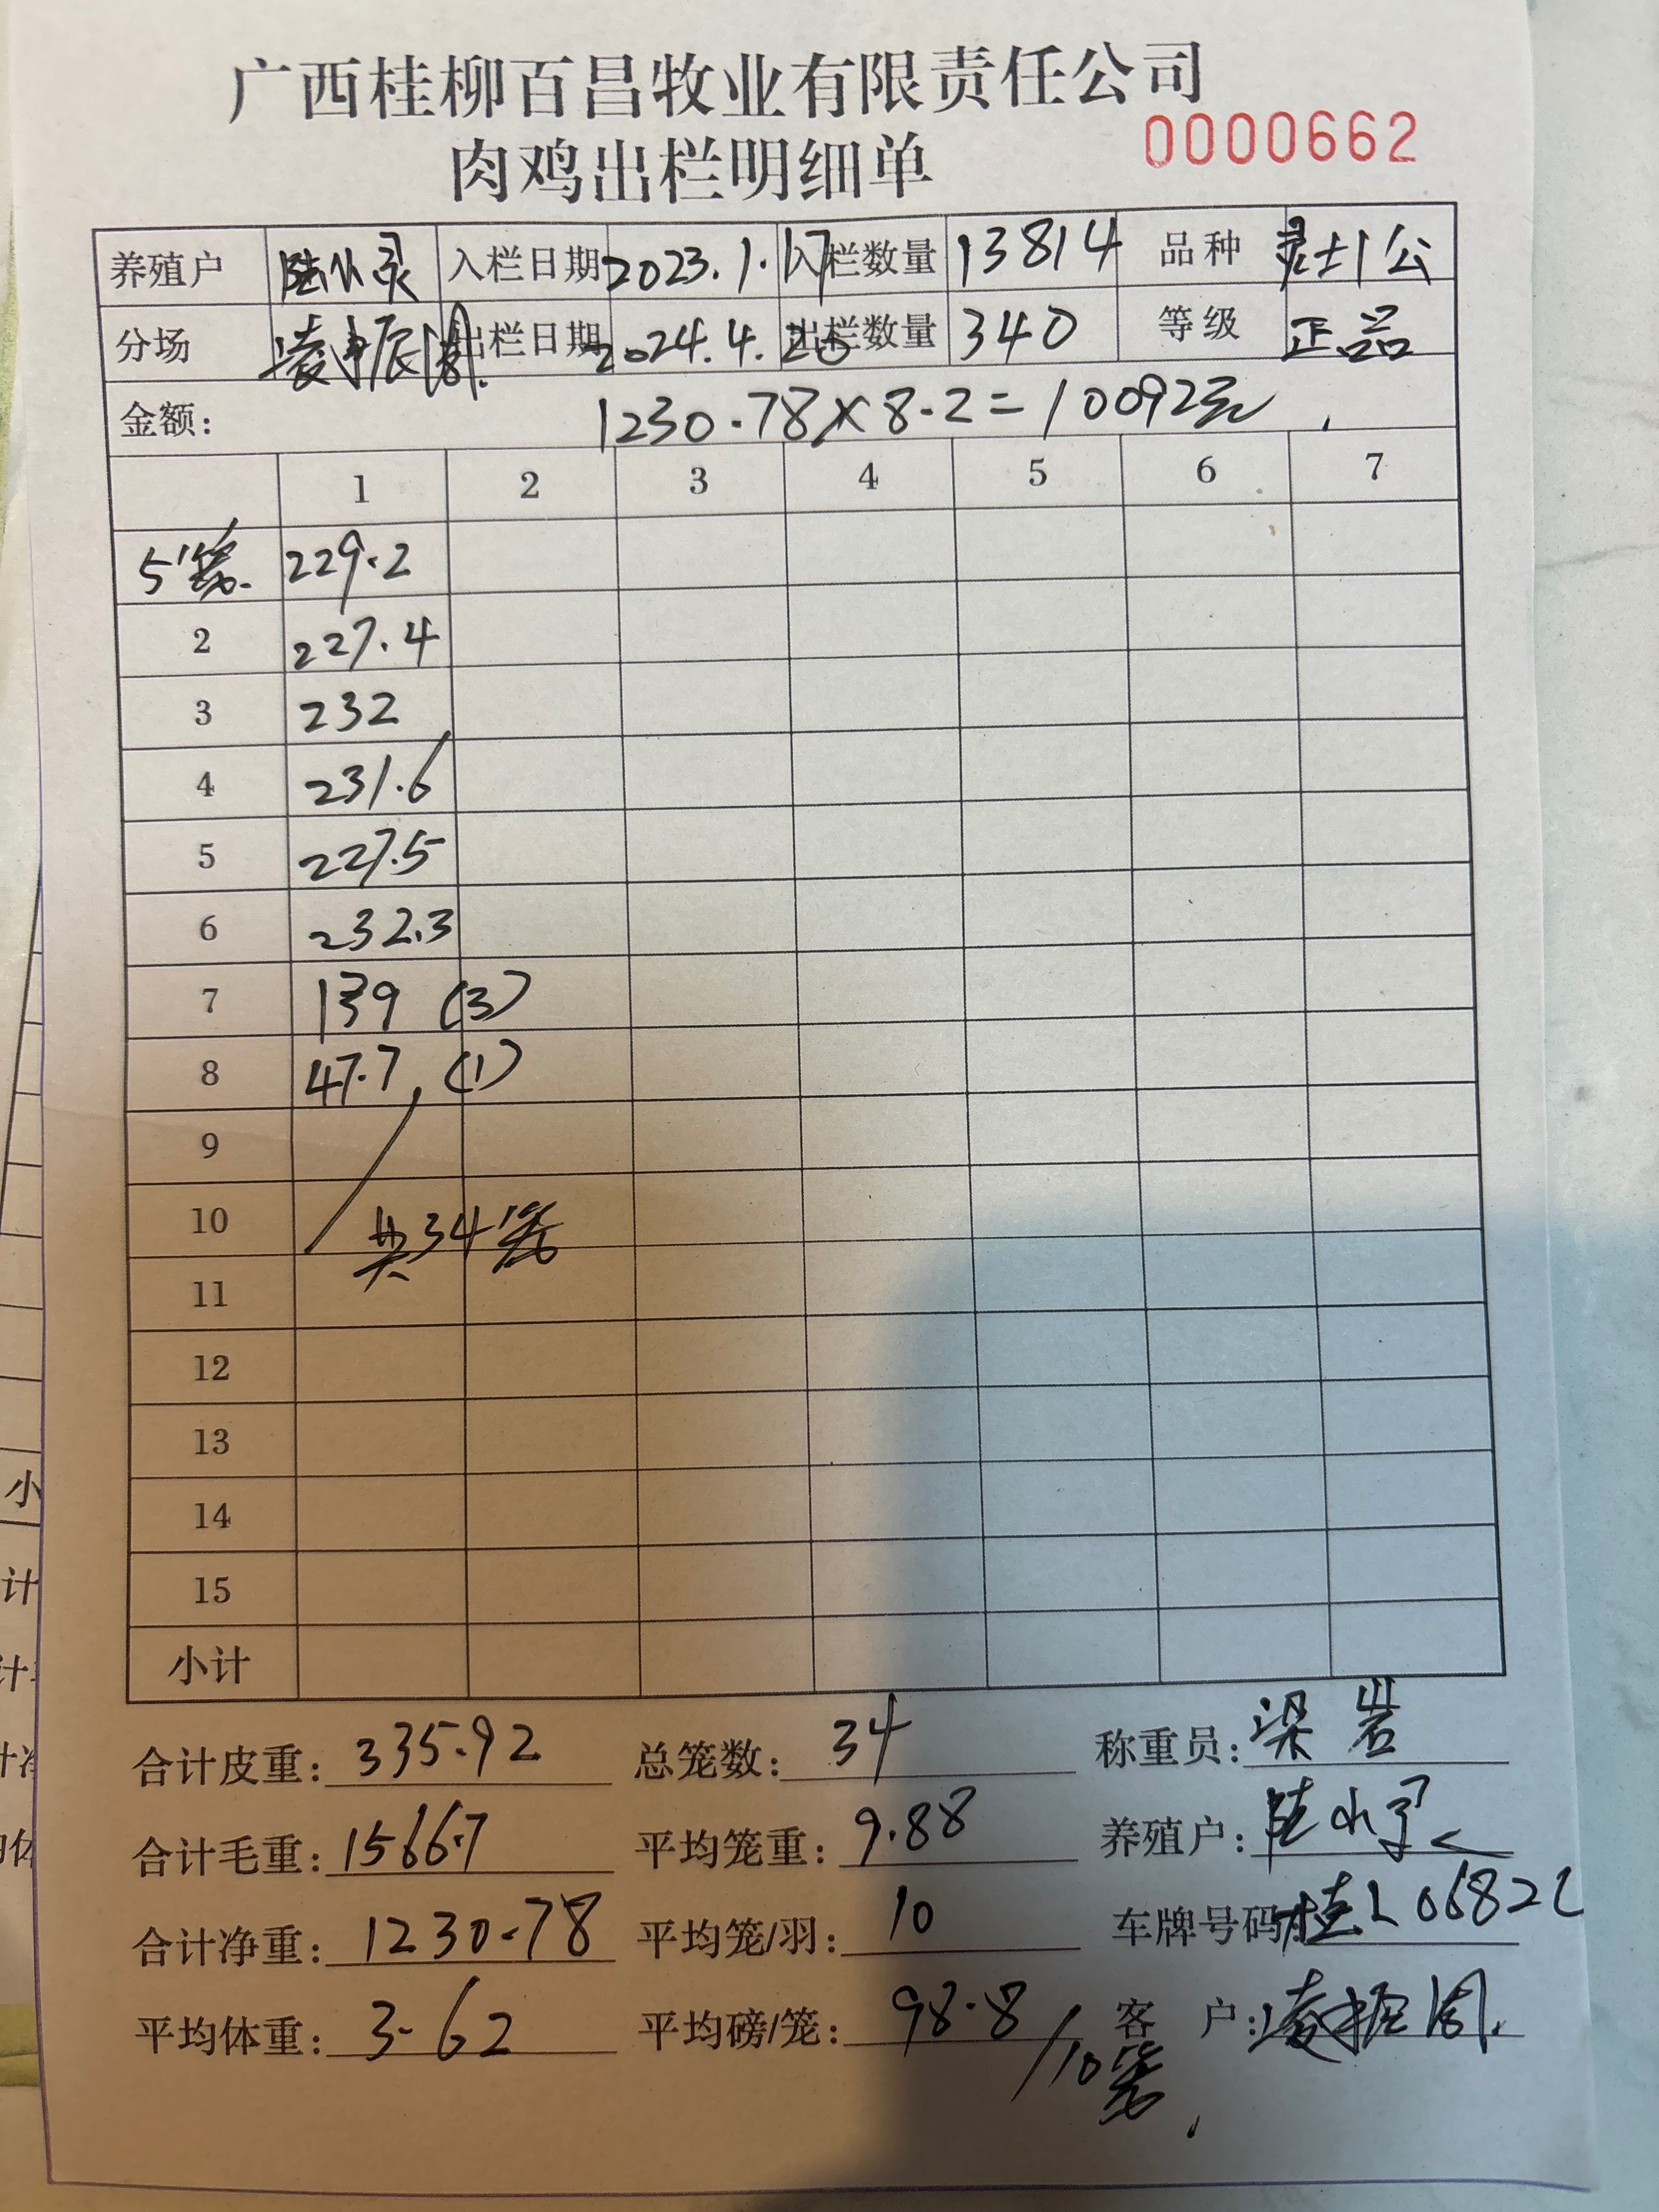 广西桂柳百昌牧业有限责任公司
肉鸡出栏明细单 0000662
养殖户 入栏日期 2023.1.17 入栏数量 13814 品种 公
分场 出栏日期 2024.4.20 出栏数量 340 等级 正品
金额: 1230.78×8.2=10092元
1 2 3 4 5 6 7
5笼 229.2
2 227.4
3 232
4 231.6
5 227.5
6 232.3
7 139 (3)
8 47.7 (1)
9
10 共34笼
11
12
13
14
15
小计
合计皮重: 335.92 总笼数: 34 称重员: 梁岩
合计毛重: 1566.7 平均笼重: 9.88 养殖户:
合计净重: 1230.78 平均笼/羽: 10 车牌号码: 桂L0682
平均体重: 3.62 平均磅/笼: 98.8/10笼 客 户:
小
计
计